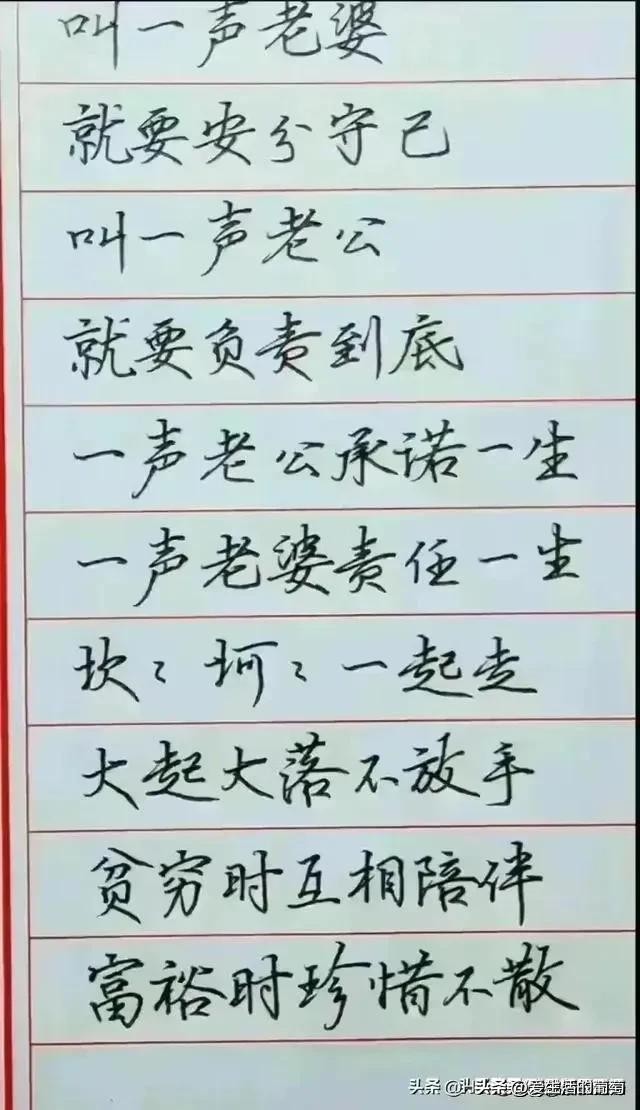 叫一声老婆
就要安分守己
叫一声老公
就要负责到底
一声老公承诺一生
一声老婆责任一生
坎々坷々一起走
大起大落不放手
贫穷时互相陪伴
富裕时珍惜不散
头条 @爱生活的葡萄